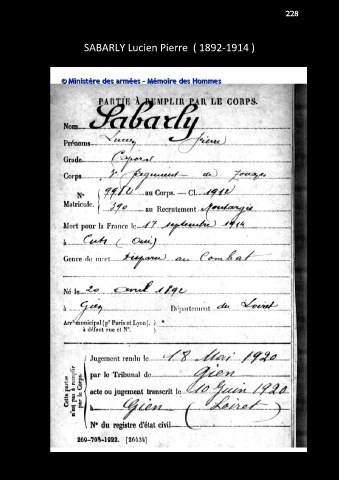 228
SABARLY Lucien Pierre ( 1892-1914 )
© Ministère des armées - Mémoire des Hommes
PARTIE À REMPLIR PAR LE CORPS.
Nom Sabarly
Prénoms Lucien Pierre
Grade Caporal
Corps Régiment de Zouaves
N° 9982 au Corps. — Cl. 1912
Matricule. 390 au Recrutement Montargis
Mort pour la France le 17 septembre 1914
à Cuts (Oise)
Genre de mort Disparu au Combat
Né le 20 avril 1892
à Gien Département du Loiret
Arrt municipal (pr Paris et Lyon), à défaut rue et N°.
Cette partie n'est pas à remplir par le Corps.
Jugement rendu le 18 Mai 1920
par le Tribunal de Gien
acte ou jugement transcrit le 10 Juin 1920
à Gien (Loiret)
N° du registre d'état civil
269-708-1922. [26434]